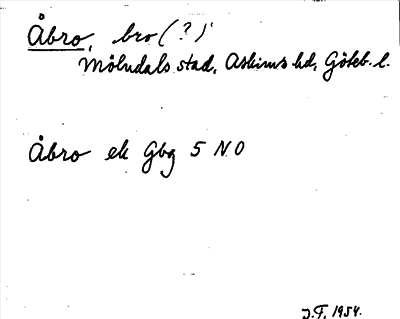 Åbro, bro (?)
Mölndals stad, Askims hd, Göteb. l.
Åbro ek Gbg 5 NO
J.F. 1954.